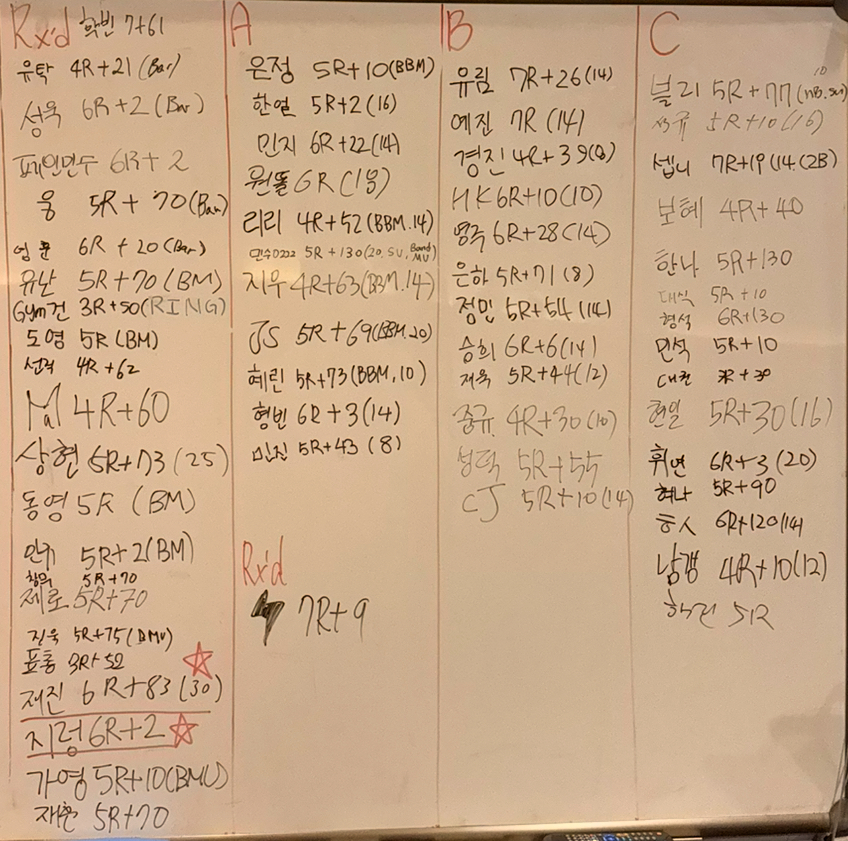 Rx'd 학빈 7+61
유탁 4R+21 (Bar)
성욱 6R+2 (Bar)
페인민수 6R+2
웅 5R+70 (Bar)
6R+20 (Bar)
유난 5R+70 (BM)
Gym건 3R+50 (RING)
도영 5R (BM)
4R+62
4R+60
상현 5R+73 (25)
동영 5R (BM)
5R+2 (BM)
5R+70
제로 5R+70
진욱 5R+75 (BMU)
표통 3R+52
재진 6R+83 (30)
지렁 6R+2
가영 5R+10 (BMU)
재훈 5R+70
A
은정 5R+10 (BBM)
한얼 5R+2 (16)
민지 6R+22 (14)
원똘 6R
리리 4R+52 (BBM.14)
민수0222 5R+130 (20, SU, Band MU)
지우 4R+63 (BBM.14)
JS 5R+69 (BBM.20)
혜린 5R+73 (BBM, 10)
형빈 6R+3 (14)
민진 5R+43 (8)
Rx'd
7R+9
B
유림 7R+26 (14)
예진 7R (14)
경진 4R+39 (8)
HK 6R+10 (10)
명주 6R+28 (14)
은하 5R+71 (8)
정민 5R+54 (14)
승희 6R+6 (14)
재욱 5R+44 (12)
중규 4R+30 (10)
성덕 5R+55
CJ 5R+10 (14)
C
블리 5R+77
석규 5R+10 (16)
셉니 7R+19 (14.(2B)
보혜 4R+40
한나 5R+130
대식 5R+10
형석 6R+130
민석 5R+10
현일 5R+30 (16)
휘연 6R+3 (20)
혜나 5R+90
6R+120 (14)
남갱 4R+10 (12)
학건 5R